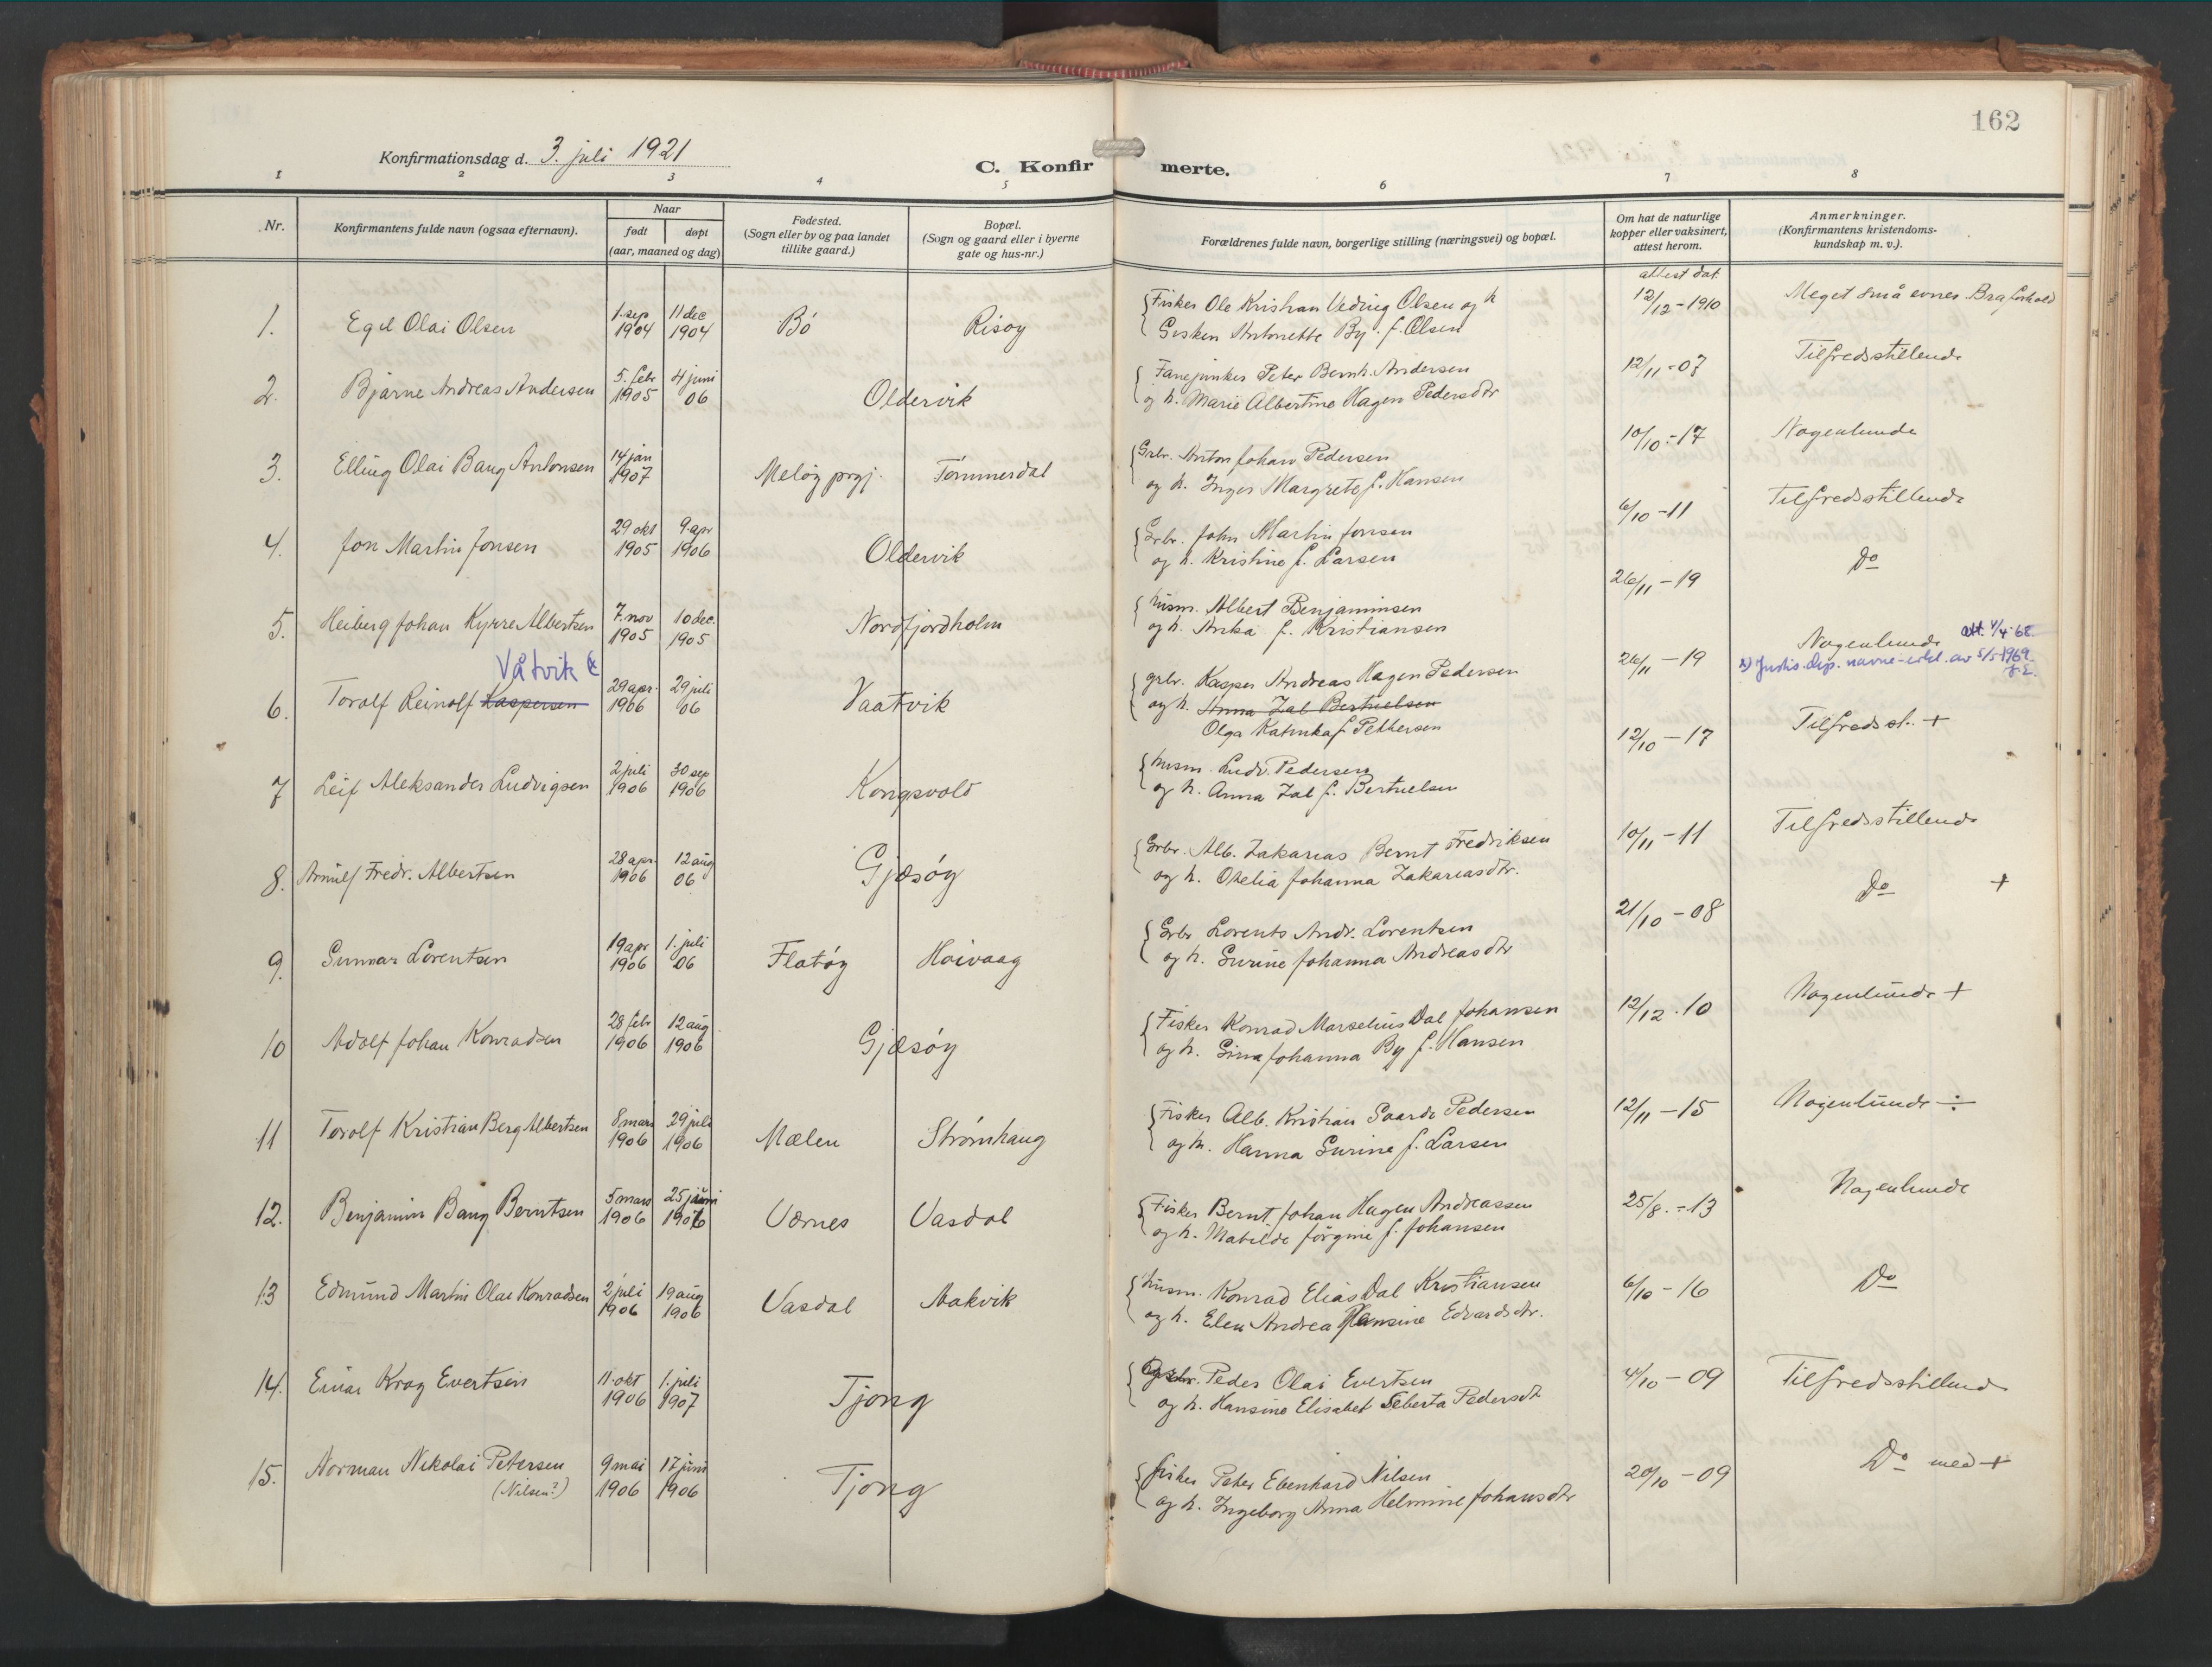 162
Konfirmationsdag d. 3. juli 1921
C. Konfirmerte.
1 2 3 4 5 6 7 8
Nr.
Konfirmantens fulde navn (ogsaa efternavn).
Naar
født døpt
(aar, maaned og dag)
Fødested.
(Sogn eller by og paa landet
tillike gaard.)
Bopæl.
(Sogn og gaard eller i byerne
gate og hus-nr.)
Forældrenes fulde navn, borgerlige stilling (næringsvei) og bopæl.
Om hat de naturlige
kopper eller vaksinert,
attest herom.
Anmerkninger.
(Konfirmantens kristendoms-
kundskap m. v.).
attest dat.
1. Egil Olai Olsen 1. sep 1904 11 dec 1904 Bö Risøy
{Fisker Ole Kristian Veding Olsen og h
Gisken Antonette By f. Olsen
12/12-1910 Meget små evner. Bra forhold
2. Bjarne Andreas Andersen 5. febr 1905 4 juni 06 Oldervik
{Fanejunker Peter Bernh. Andersen
og h. Marie Albertine Hagen Pedersdtr
12/11-07 Tilfredsstillende
3. Elling Olai Bang Antonsen 14 jan 1907 Meløy prgj. Tömmerdal
{Grbr. Anton Johan Pedersen
og h. Inger Margrete f. Hansen
10/10-17 Nogenlunde
4. Jon Martin Jonsen 29 okt 1905 9. apr 1906 Oldervik
{Grbr. John Martin Jonsen
og h. Kristine f. Larsen
6/10-11 Tilfredsstillende
5. Heiberg Johan Kyrre Albertsen 7. nov 1905 10 dec. 1905 Nordfjordholm
{husm. Albert Benjaminsen
og h. Anka f. Kristiansen
26/11-19 Do
Våtvik (x
6. Torolf Reinolf Kaspersen 29 apr. 1906 29 juli 06 Vaatvik
{grbr. Kasper Andreas Hagen Pedersen
og h. Anna Zal Bertielsen
Olga Katinka f Pettersen
26/11-19 Nogenlunde att. 4/4-68.
x) Justis.dep. navne-erkl. av 5/5-1969.
7 Leif Aleksander Ludvigsen 2 juli 1906 30 sep 1906 Kongsvold
{husm. Ludv. Pedersen
og h. Anna Zal f. Bertielsen
12/10-17 Tilfredsst. +
8. Arnulf Fredr. Albertsen 28 apr. 1906 12 aug 06 Gjæsøy
{Grbr. Alb. Zakarias Bernt Fredriksen
og h. Otelia Johanna Zakariasdtr.
10/11-11 Tilfredsstillende
9. Gunnar Lorentsen 19 apr 1906 1. juli 06 Flatøy Høivaag
{Grbr Lorents Andr. Lorentsen
og h. Gurine Johanna Andreasdtr
21/10-08 Do +
10 Adolf Johan Konradsen 28 febr 1906 12 aug 1906 Gjæsøy
{Fisker Konrad Marselius Dal Johansen
og h. Gina Johanna By f. Hansen
12/12.10 Nogenlunde +
11 Torolf Kristian Berg Albertsen 8 mars 1906 29 juli 1906 Mælen Strømhaug
{Fisker Alb. Kristian Saarde Pedersen
og h. Hanna Gurine f. Larsen
12/11-15 Nogenlunde ÷
12. Benjamin Bang Berntsen 5 mars 1906 25 juni 1906 Værnes Vasdal
{Fisker Bernt Johan Hagen Andreassen
og h. Matilde Jörgine f. Johansen
25/8.-13 Nogenlunde
13 Edmund Martin Olai Konradsen 2 juli 1906 19 aug 1906 Vasdal Aakvik
{husm. Konrad Elias Dal Kristiansen
og h. Elen Andrea Hansine Edvardsdtr.
6/10-16 Do
14. Einar Krog Evertsen 11. okt 1906 1. juli 1907 Tjong
{Grbr. Peder Olai Evertsen
og h. Hansine Elisabet Seberta Pedersdt
4/10-09 Tilfredsstillend
15. Norman Nikolai Petersen
(Nilsen?) 9 mai 1906 17 juni 1906 Tjong
{fisker Peter Ebenhard Nilsen
og h. Ingeborg Anna Helmine Johansdtr
20/10-09 Do med +